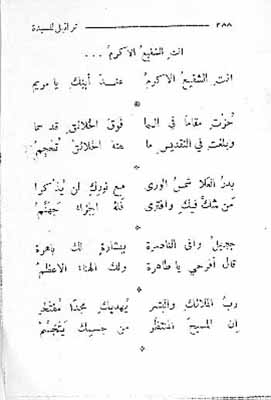 ٢٨٨ تراتيل للسيدة
انتِ الشفيعُ الاكرمُ ...
انتِ الشفيعُ الاكرمُ عندَ أبنِكِ يا مريم
حُزتِ مقاماً في السما فوقَ الخلائقِ قد سما
وبلغتِ في التقديسِ ما عنهُ الخلائقُ تُحجِمُ
بدرُ العلا شمسُ الورى مع نورِكِ لن يُذكرا
مَن شكَّ فيكِ وافترى فلهُ الجزاءُ جَهنَّمُ
جبريلُ وافى الناصرة ببشارةٍ لكِ باهرة
قال أفرحي يا طاهرة ولكِ الهناءُ الاعظمُ
ربُّ الملائكِ والبشر يُهديكِ مجداً مُفتخَر
إن المسيحَ المنتظَر من جسمِكِ يتجسَّمُ